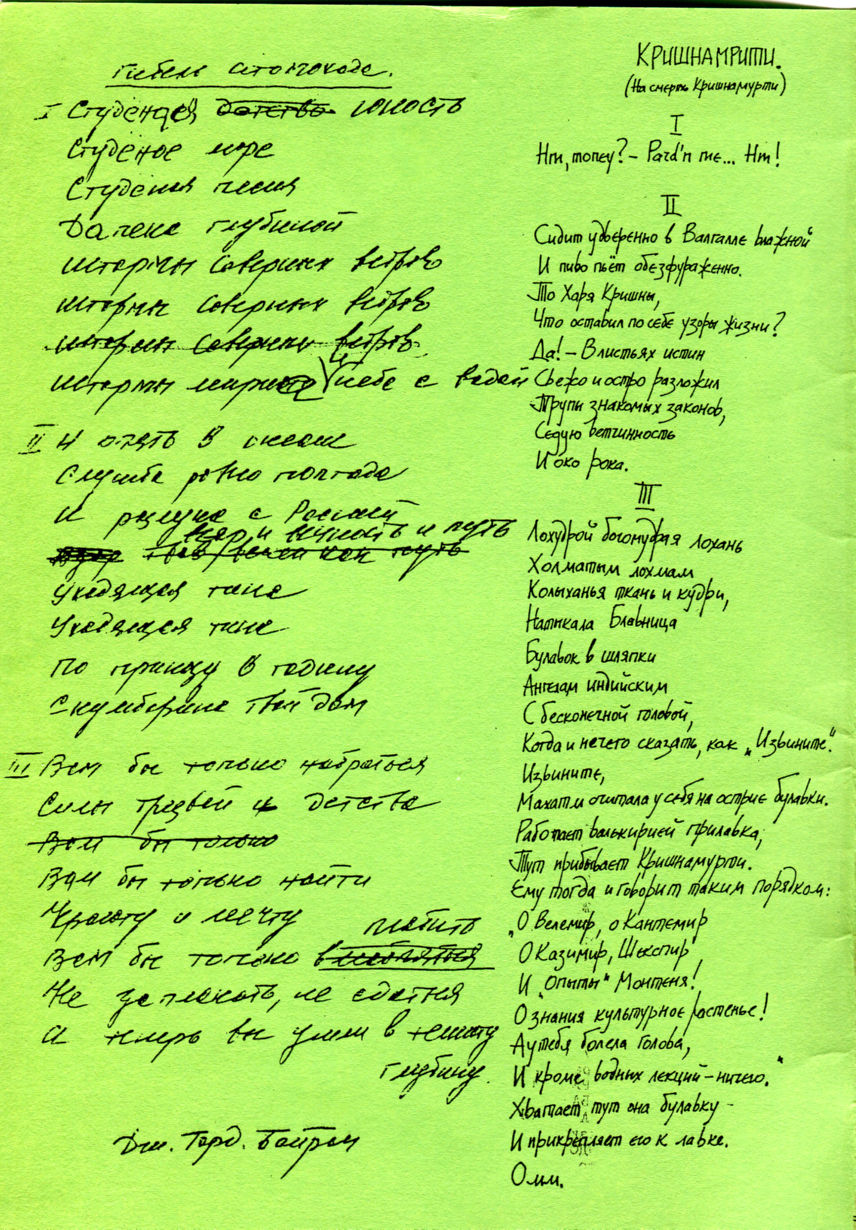 Гибель атомохода.
I Студеная детство юность
Студеное море
Студеная песня
Далека глубиной
Штормы северных ветров
Штормы северных ветров
Штормы северных ветров
Штормы мирите небе с водой
II И опять в океан
Служба ровно полгода
И разлука с Россией
мор и вечность и путь
путь
Уходящая тина
Уходящая тина
По приказу в годину
Субмарина твой дом
III Вам бы только набраться
Силы трезвей и детства
Вам бы только
Вам бы только найти
Красоту и мечту
любить
Вам бы только
Не заплакать, не сдаться
А теперь вы ушли в темноту
глубину.
Дж. Горд. Байрон
КРИШНАМРИТИ.
(На смерть Кришнамурти)
I
Hm, mopey? – Pard'n me... Hm!
II
Сидит удверенно в Валгалле влажной
И пиво пьёт обезфураженно.
То Харя Кришны,
Что оставил по себе узоры жизни?
Да! – В листьях истин
Свежо и остро разложил
Трупы знакомых законов,
Седую ветчинность
И око рока.
III
Лохудрой богонудрая лохань
Холматым лохмам
Колыханья ткань и кудри,
Натыкала Блавница
Булавок в шляпки
Ангелам индийским
С бесконечной головой,
Когда и нечего сказать, как „Извините".
Извините,
Махатм считала у себя на острие булавки.
Работает валькирией прилавка,
Тут прибывает Кришнамурти.
Ему тогда и говорит таким порядком:
„О Велемир, о Кантемир
О Казимир, Шекспир
И „Опыты" Монтеня!
О знания культурное растенье!
А у тебя болела голова,
И кроме водных лекций – ничего."
Хватает тут она булавку –
И прикрепляет его к лавке.
Омм.